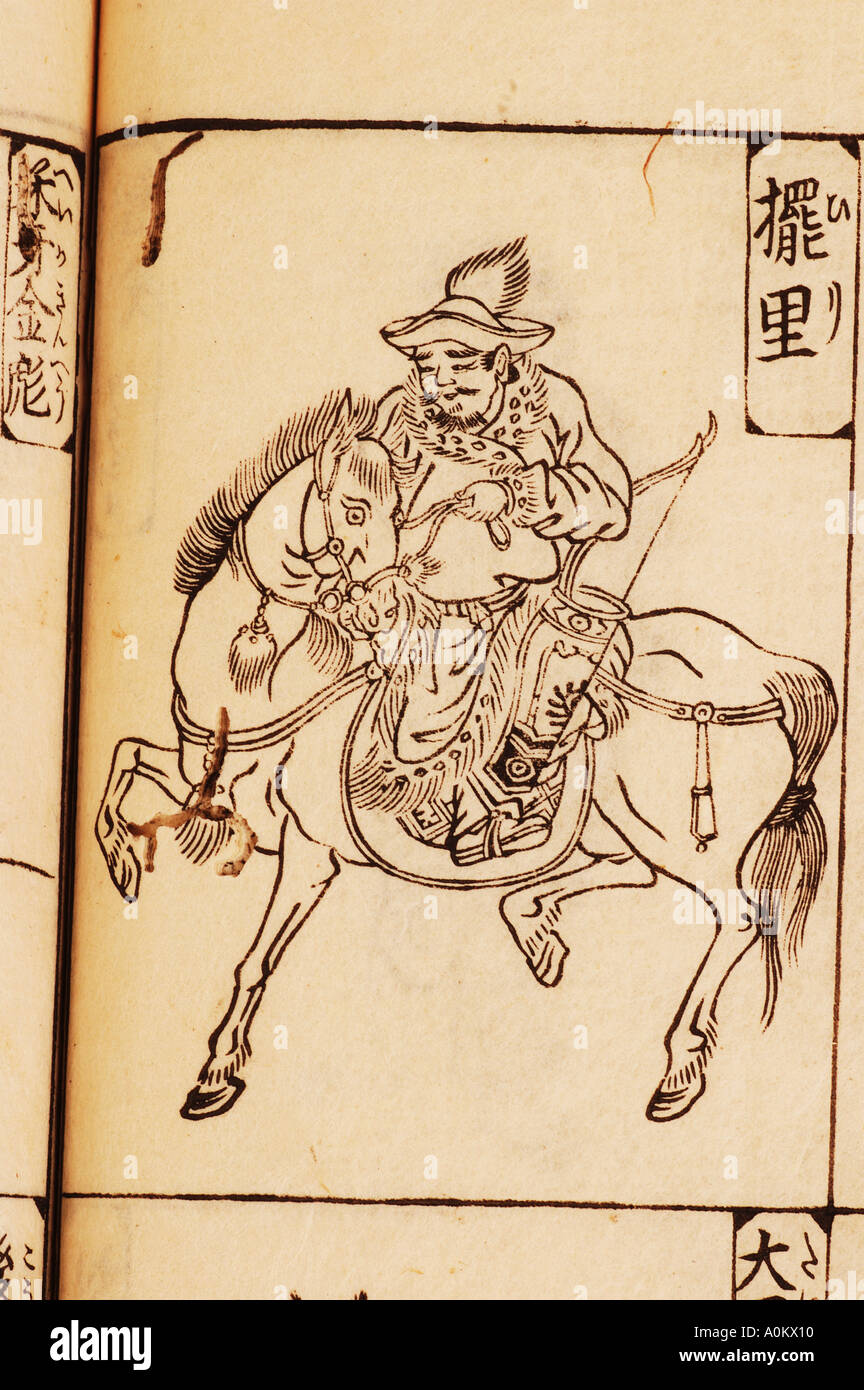 擺里
ひり
牙金彪
へいがきんへう
大
た
こ
alamy
Image ID: A0KX10
www.alamy.com